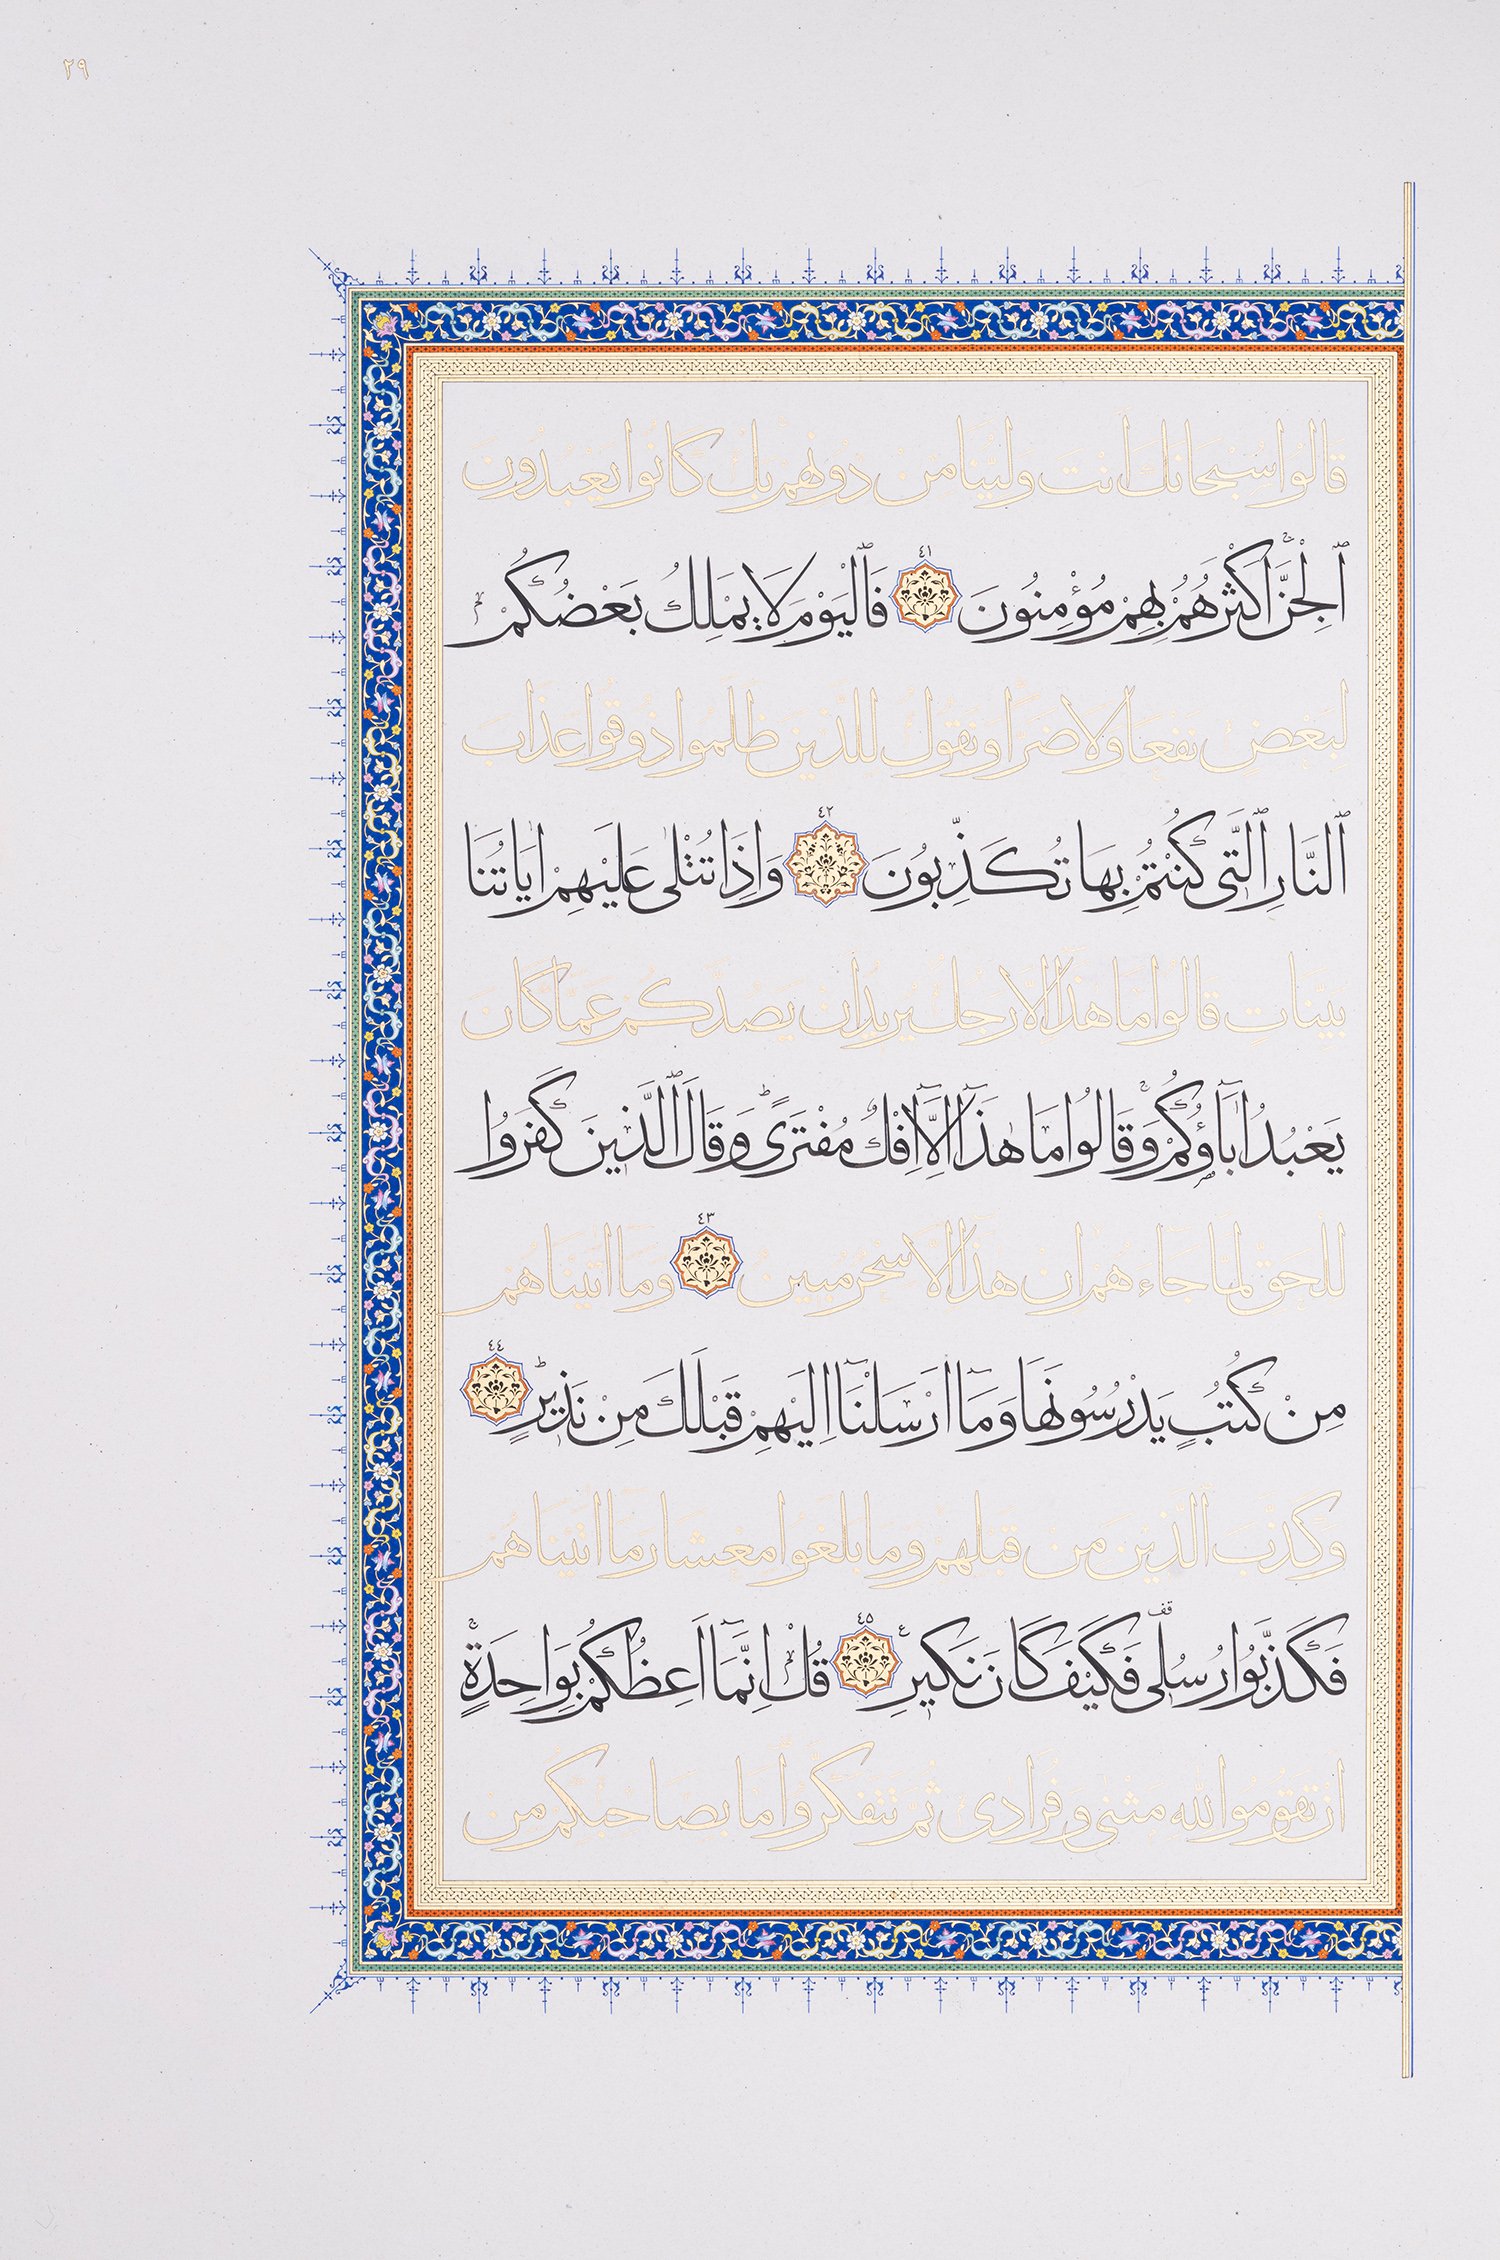 ٢٩
قَالُوا سُبْحَانَكَ اَنْتَ وَلِيُّنَا مِنْ دُونِهِمْ بَلْ كَانُوا يَعْبُدُونَ
ٱلْجِنَّ اَكْثَرُهُمْ بِهِمْ مُؤْمِنُونَ ٤١ فَٱلْيَوْمَ لَا يَمْلِكُ بَعْضُكُمْ
لِبَعْضٍ نَفْعًا وَلَا ضَرًّا وَنَقُولُ لِلَّذِينَ ظَلَمُوا ذُوقُوا عَذَابَ
ٱلنَّارِ ٱلَّتٖى كُنْتُمْ بِهَا تُكَذِّبُونَ ٤٢ وَاِذَا تُتْلٰى عَلَيْهِمْ اٰيَاتُنَا
بَيِّنَاتٍ قَالُوا مَا هٰذَٓا اِلَّا رَجُلٌ يُرٖيدُ اَنْ يَصُدَّكُمْ عَمَّا كَانَ
يَعْبُدُ اٰبَٓاؤُ۬كُمْۚ وَقَالُوا مَا هٰذَٓا اِلَّٓا اِفْكٌ مُفْتَرًىؕ وَقَالَ ٱلَّذٖينَ كَفَرُوا
لِلْحَقِّ لَمَّا جَٓاءَهُمْ اِنْ هٰذَٓا اِلَّا سِحْرٌ مُبٖينٌ ٤٣ وَمَٓا اٰتَيْنَاهُمْ
مِنْ كُتُبٍ يَدْرُسُونَهَا وَمَٓا اَرْسَلْنَٓا اِلَيْهِمْ قَبْلَكَ مِنْ نَذٖيرٍؕ ٤٤
وَكَذَّبَ ٱلَّذٖينَ مِنْ قَبْلِهِمْ وَمَا بَلَغُوا مِعْشَارَ مَٓا اٰتَيْنَاهُمْ
فَكَذَّبُوا رُسُلٖى ۠ فَكَيْفَ كَانَ نَكٖيرِ ٤٥ قُلْ اِنَّمَٓا اَعِظُكُمْ بِوَاحِدَةٍۚ
اَنْ تَقُومُوا لِلّٰهِ مَثْنٰى وَفُرَادٰى ثُمَّ تَتَفَكَّرُوا مَا بِصَاحِبِكُمْ مِنْ